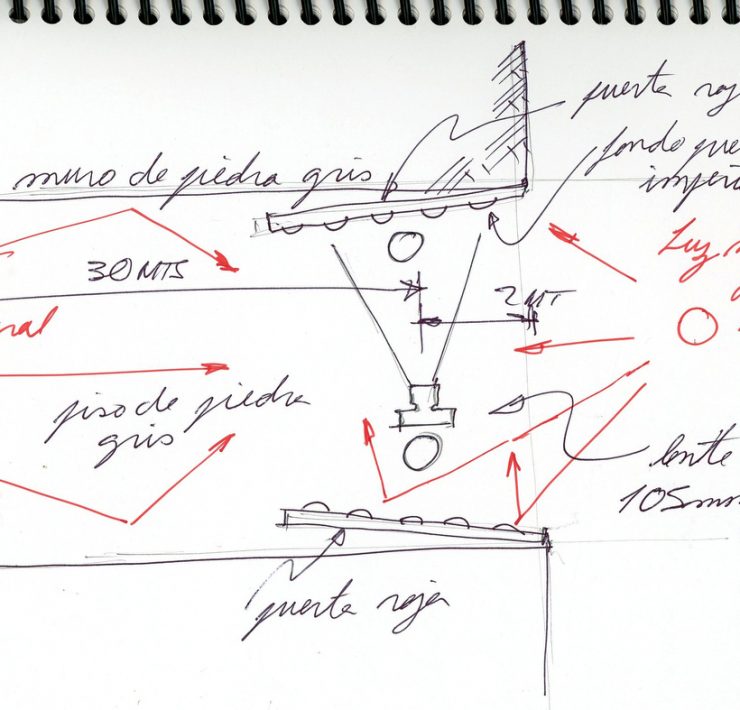 puerta roj
muro de piedra gris
fondo que
30 MTS
Luz
2 MT
piso de piedra
gris
lente
105mm
puerta roja